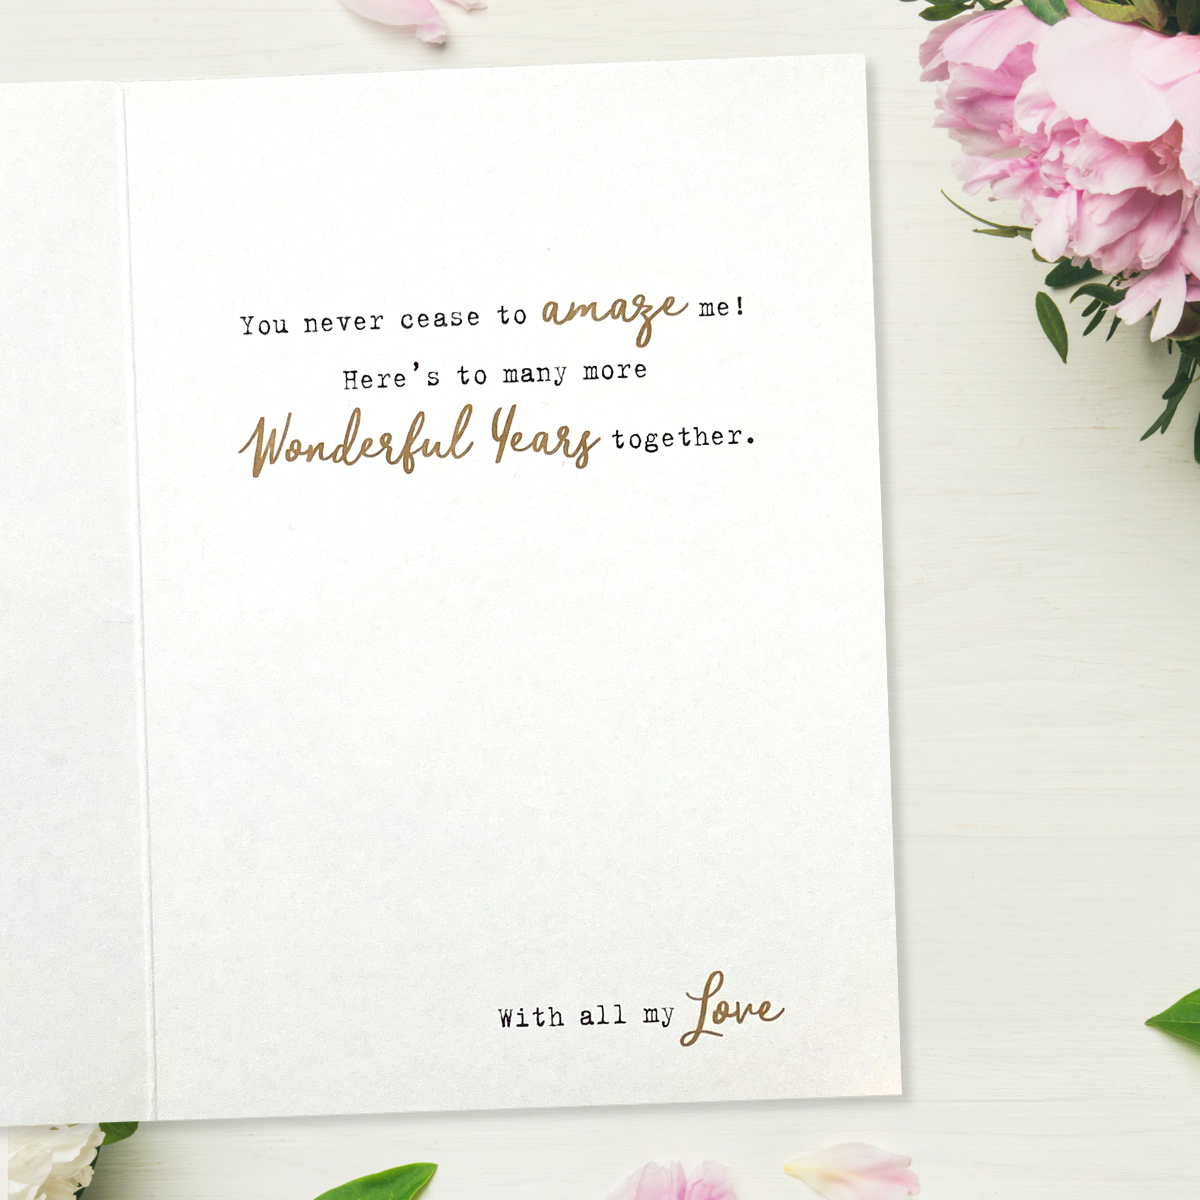 You never cease to amaze me!
Here's to many more
Wonderful Years together.
With all my Love